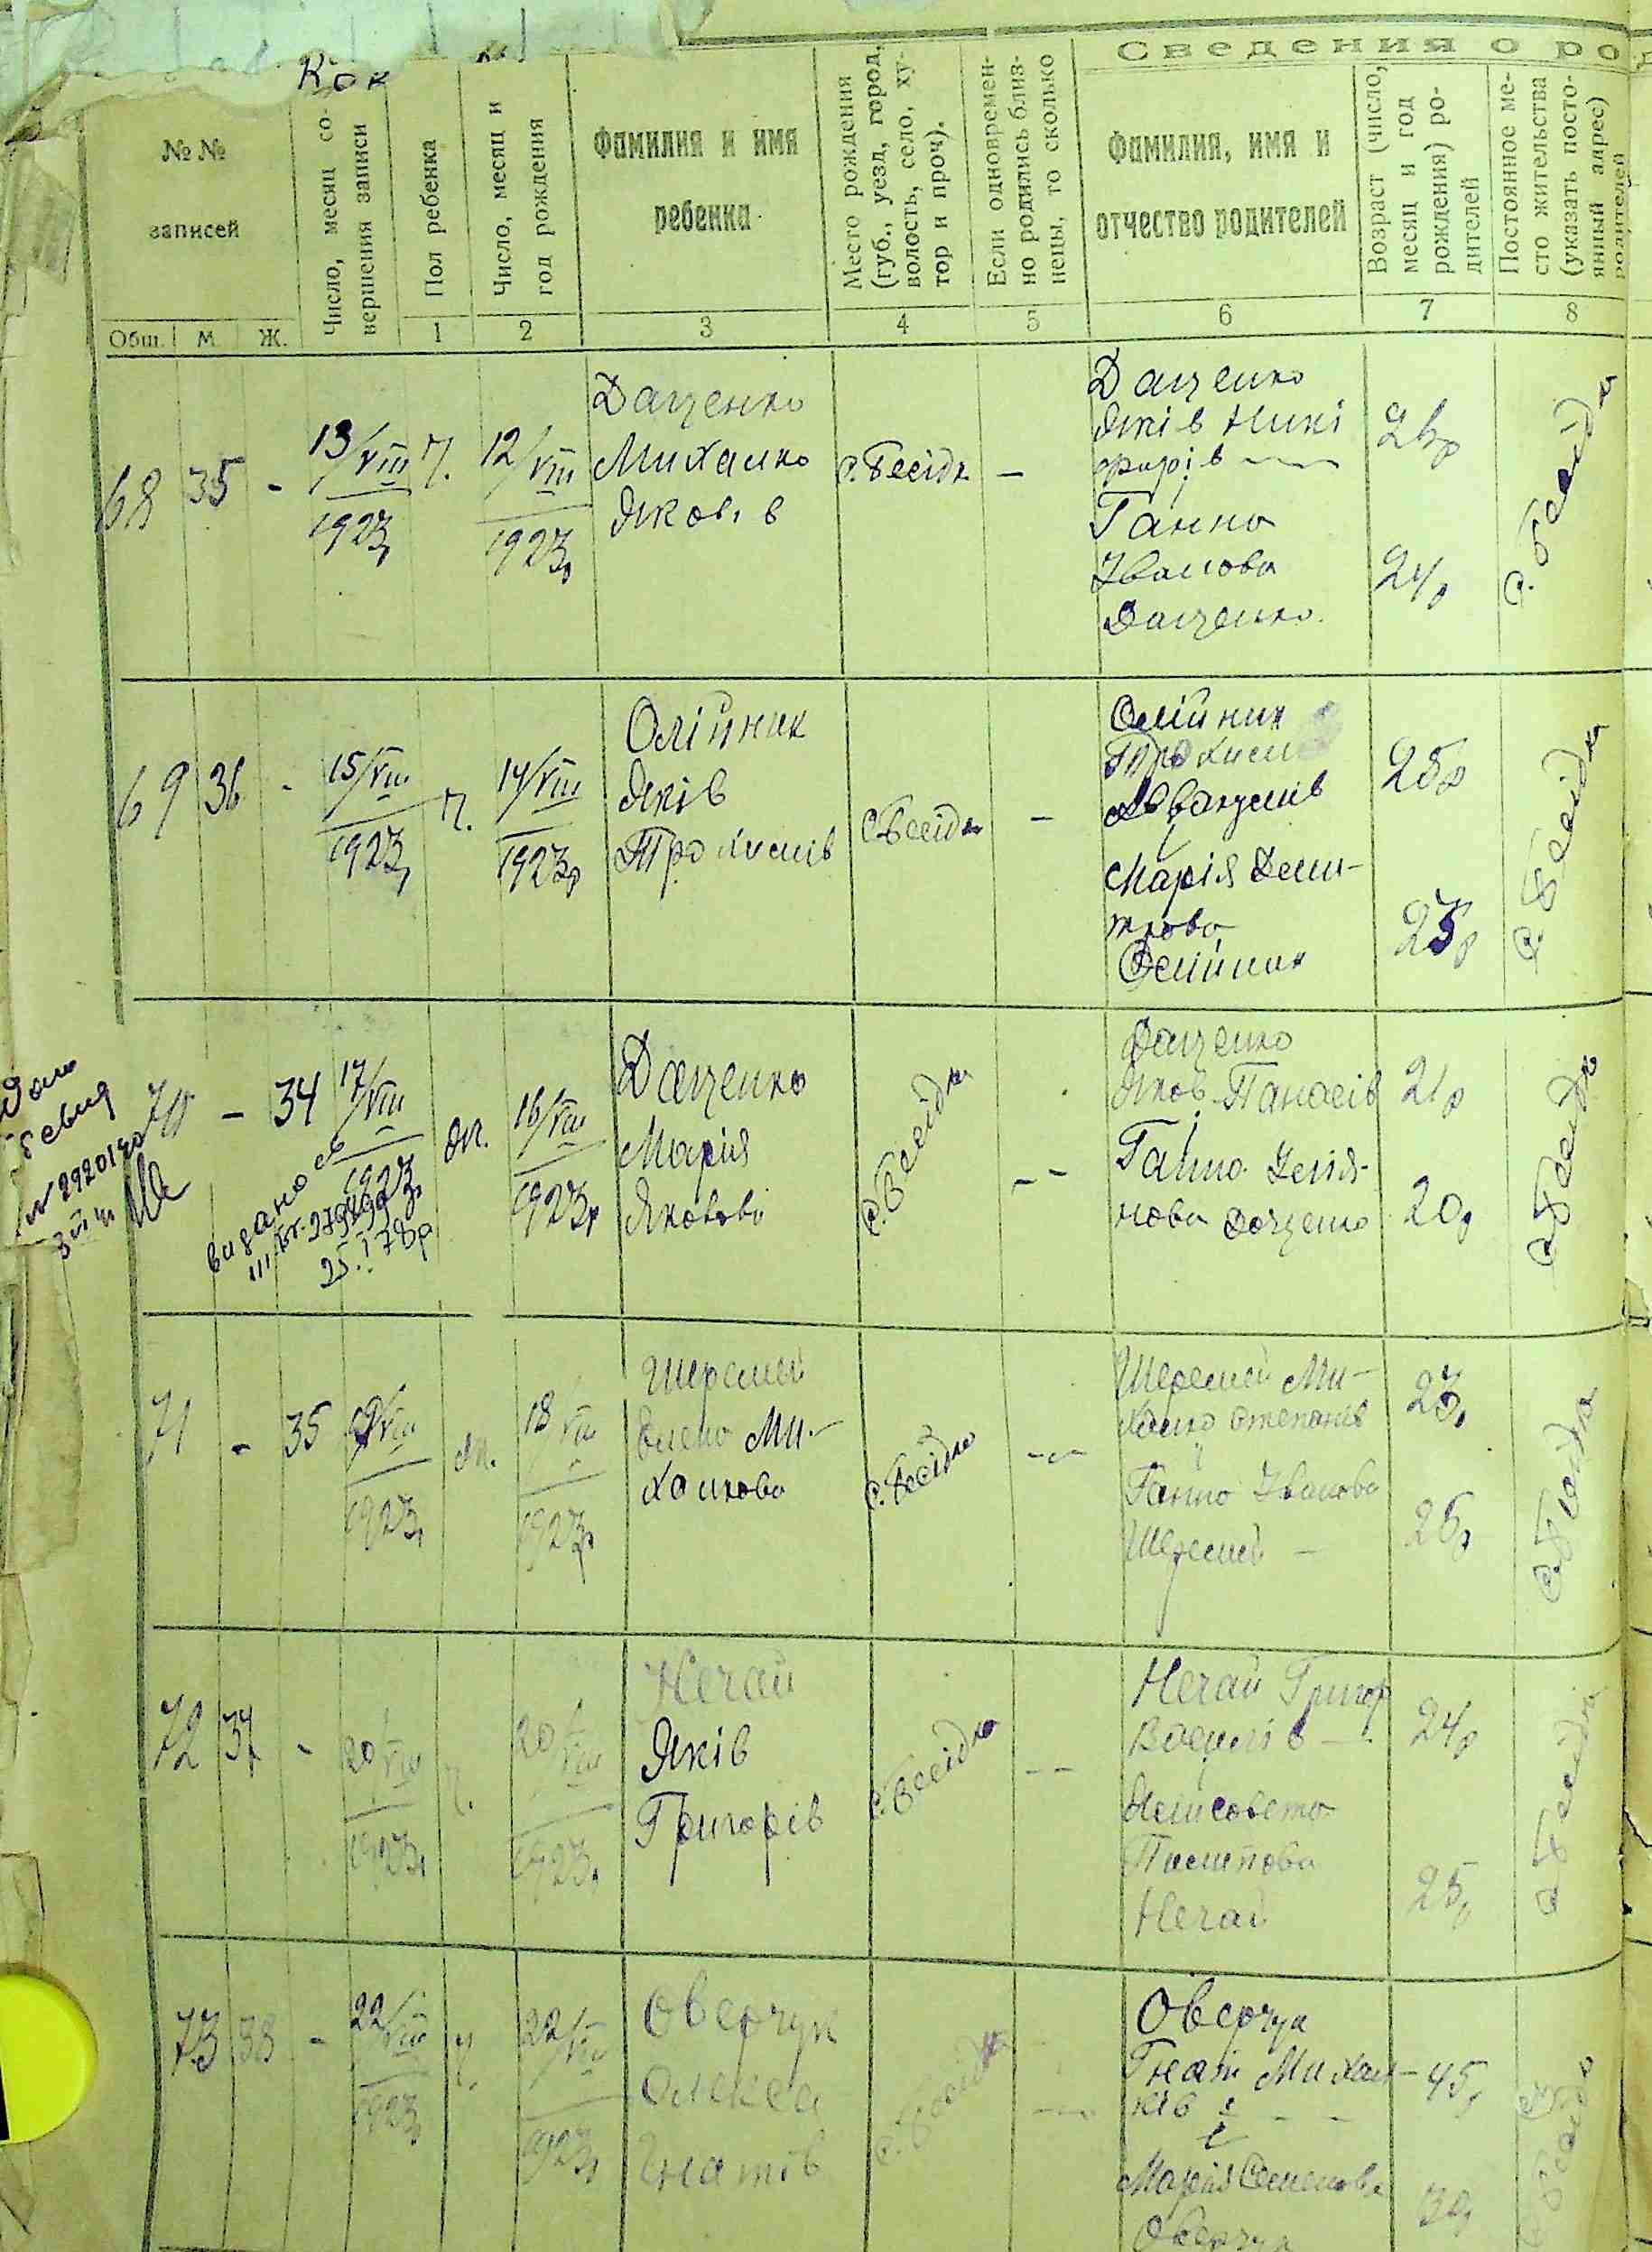 Сведения о ро
№№
записей
Число, месяц со-
вершения записи
Пол ребенка
Число, месяц и
год рождения
Фамилия и имя
ребенка
Место рождения
(губ., уезд, город,
волость, село, ху-
тор и проч).
Если одновремен-
но родились близ-
нецы, то сколько
Фамилия, имя и
отчество родителей
Возраст (число,
месяц и год
рождения) ро-
дителей
Постоянное ме-
сто жительства
(указать посто-
янный адрес)
родителей
Общ. М Ж. 1 2 3 4 5 6 7 8
68 35 -
13/VIII
1923р
ч.
12/VIII
1923р
Даценко
Михайло
Яковів
с. Бесідка
-
Даценко
Яків Никі
форів
Ганна
Іванова
Даценко.
24р
с. Бесідка
69 36 -
15/VIII
1923р
ч.
14/VIII
1923р
Олійник
Яків
Трохимів
с. Бесідка
-
Олійник
Трохим
Марія Дми-
трова
Олійник
25р
с. Бесідка
70 - 34
17/VIII
1923р
видано св
25.I 78р
жі.
16/VIII
1923р
Даценко
Марія
Яковова
с. Бесідка
--
Даценко
Яков Панасів
Ганна
нова Даценко
21р
20р
с. Бесідка
71 - 35
VIII
1923р
жі.
18/VIII
1923р
Шеремет
Олена Ми-
хайлова
с. Бесідка
--
Шеремет Ми-
хайло Степанів
Ганна Іванова
Шеремет -
23р
25р
с. Бесідка
72 37 -
20/VIII
1923р
ч.
20/VIII
1923р
Нечай
Яків
Григорів
с. Бесідка
--
Нечай Григор
Василів -
Пилипова
Нечай
24р
25р
с. Бесідка
73 38 -
22/VIII
1923р
ч.
22/VIII
1923р
Оверчук
Олекса
Гнатів
с. Бесідка
--
Оверчук
Гнат Михай-
ків - -
Марія Семенова
Оверчук
45р
30р
с. Бесідка